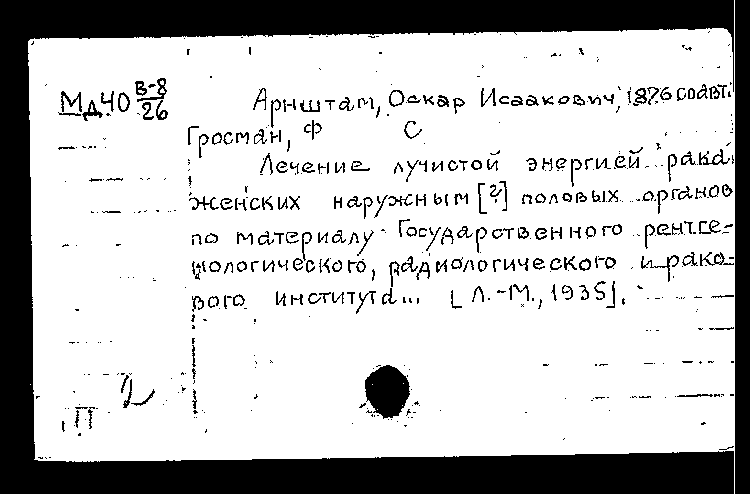 Мд40 В-8/26
Арнштам, Оскар Исаакович, 1876 соавт.
Гросман, Ф С
Лечение лучистой энергией рака
женских наружным [?] половых органов
по материалу Государственного рентге-
нологического, радиологического и рако-
вого института... [Л.-М., 1935].
2
П